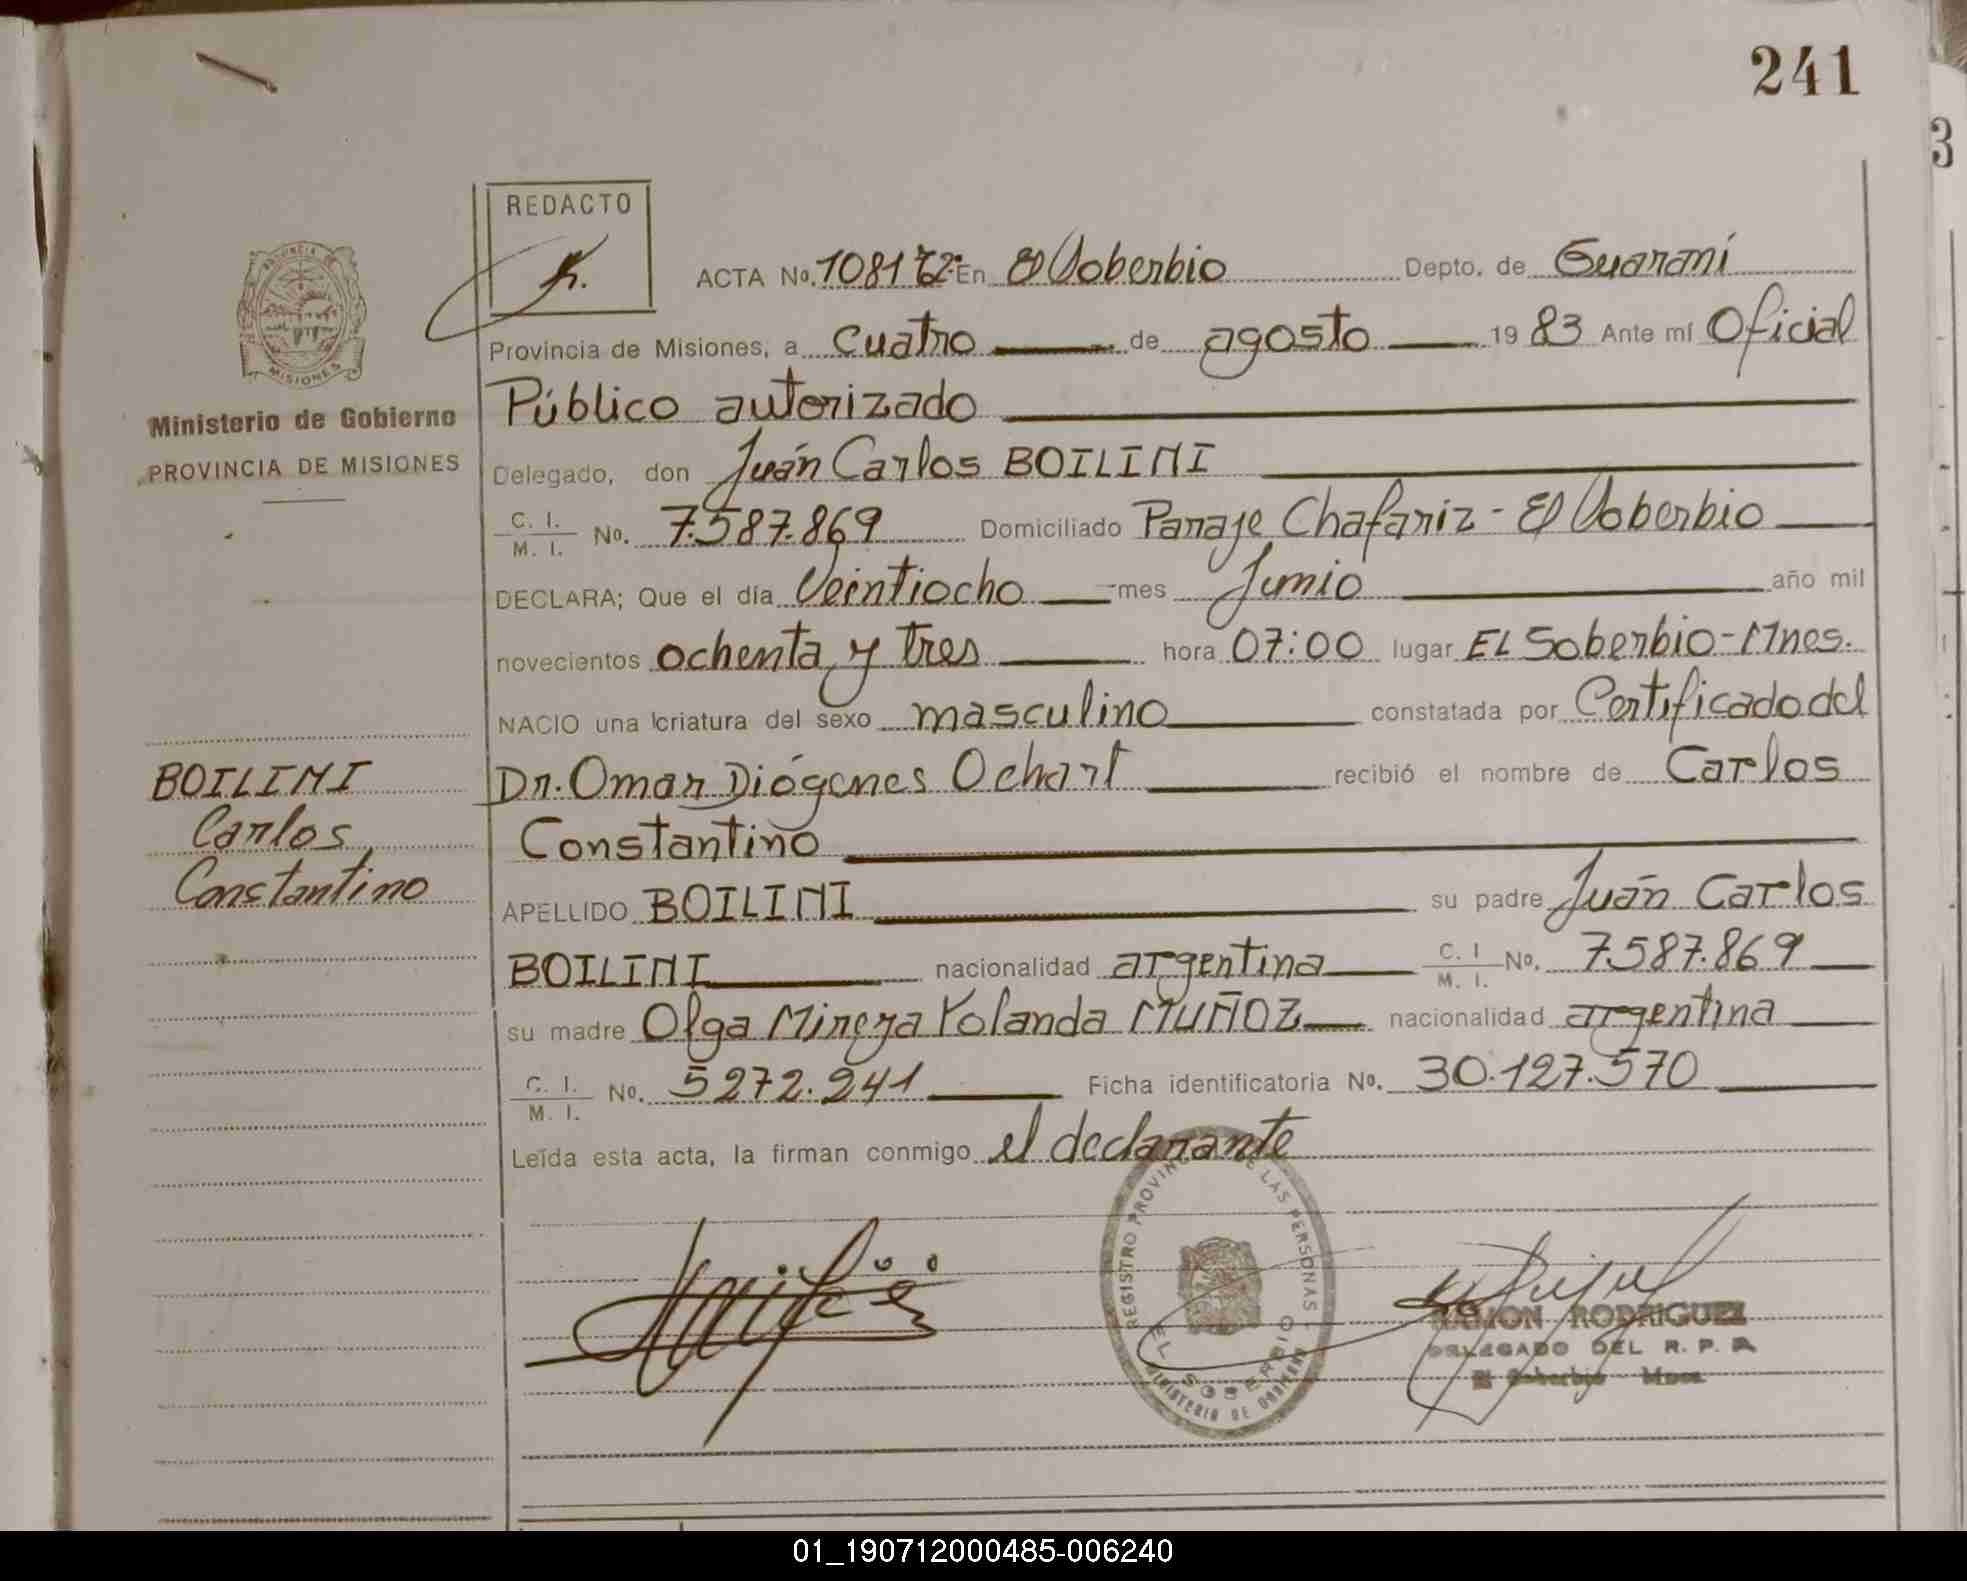 241
3
REDACTO
PROVINCIA DE
MISIONES
Ministerio de Gobierno
PROVINCIA DE MISIONES
ACTA No. En El Soberbio Depto. de Guaraní
Provincia de Misiones, a cuatro de agosto 1983 Ante mí Oficial
Público autorizado
Delegado, don Juán Carlos BOILINI
C. I. / M. I. No. 7.587.869 Domiciliado Paraje Chafariz - El Soberbio
DECLARA; Que el día Veintiocho mes Junio año mil
novecientos ochenta y tres hora 07:00 lugar EL Soberbio-Mnes.
NACIO una criatura del sexo masculino constatada por Certificado del
Dr. Omar Diógenes Ochart recibió el nombre de Carlos
Constantino
APELLIDO BOILINI su padre Juán Carlos
BOILINI nacionalidad argentina C. I / M. I. No. 7.587.869
su madre Olga Mireya Yolanda MUÑOZ nacionalidad argentina
C. I. / M. I. No. 5272.241 Ficha identificatoria No. 30.127.570
Leída esta acta, la firman conmigo el declarante
BOILINI
Carlos
Constantino
REGISTRO PROVINC DE LAS PERSONAS
EL SOBERBIO
MINISTERIO DE GOBIERNO
RAMON RODRIGUEZ
DELEGADO DEL R. P. P.
El Soberbio - Mnes.
01_190712000485-006240